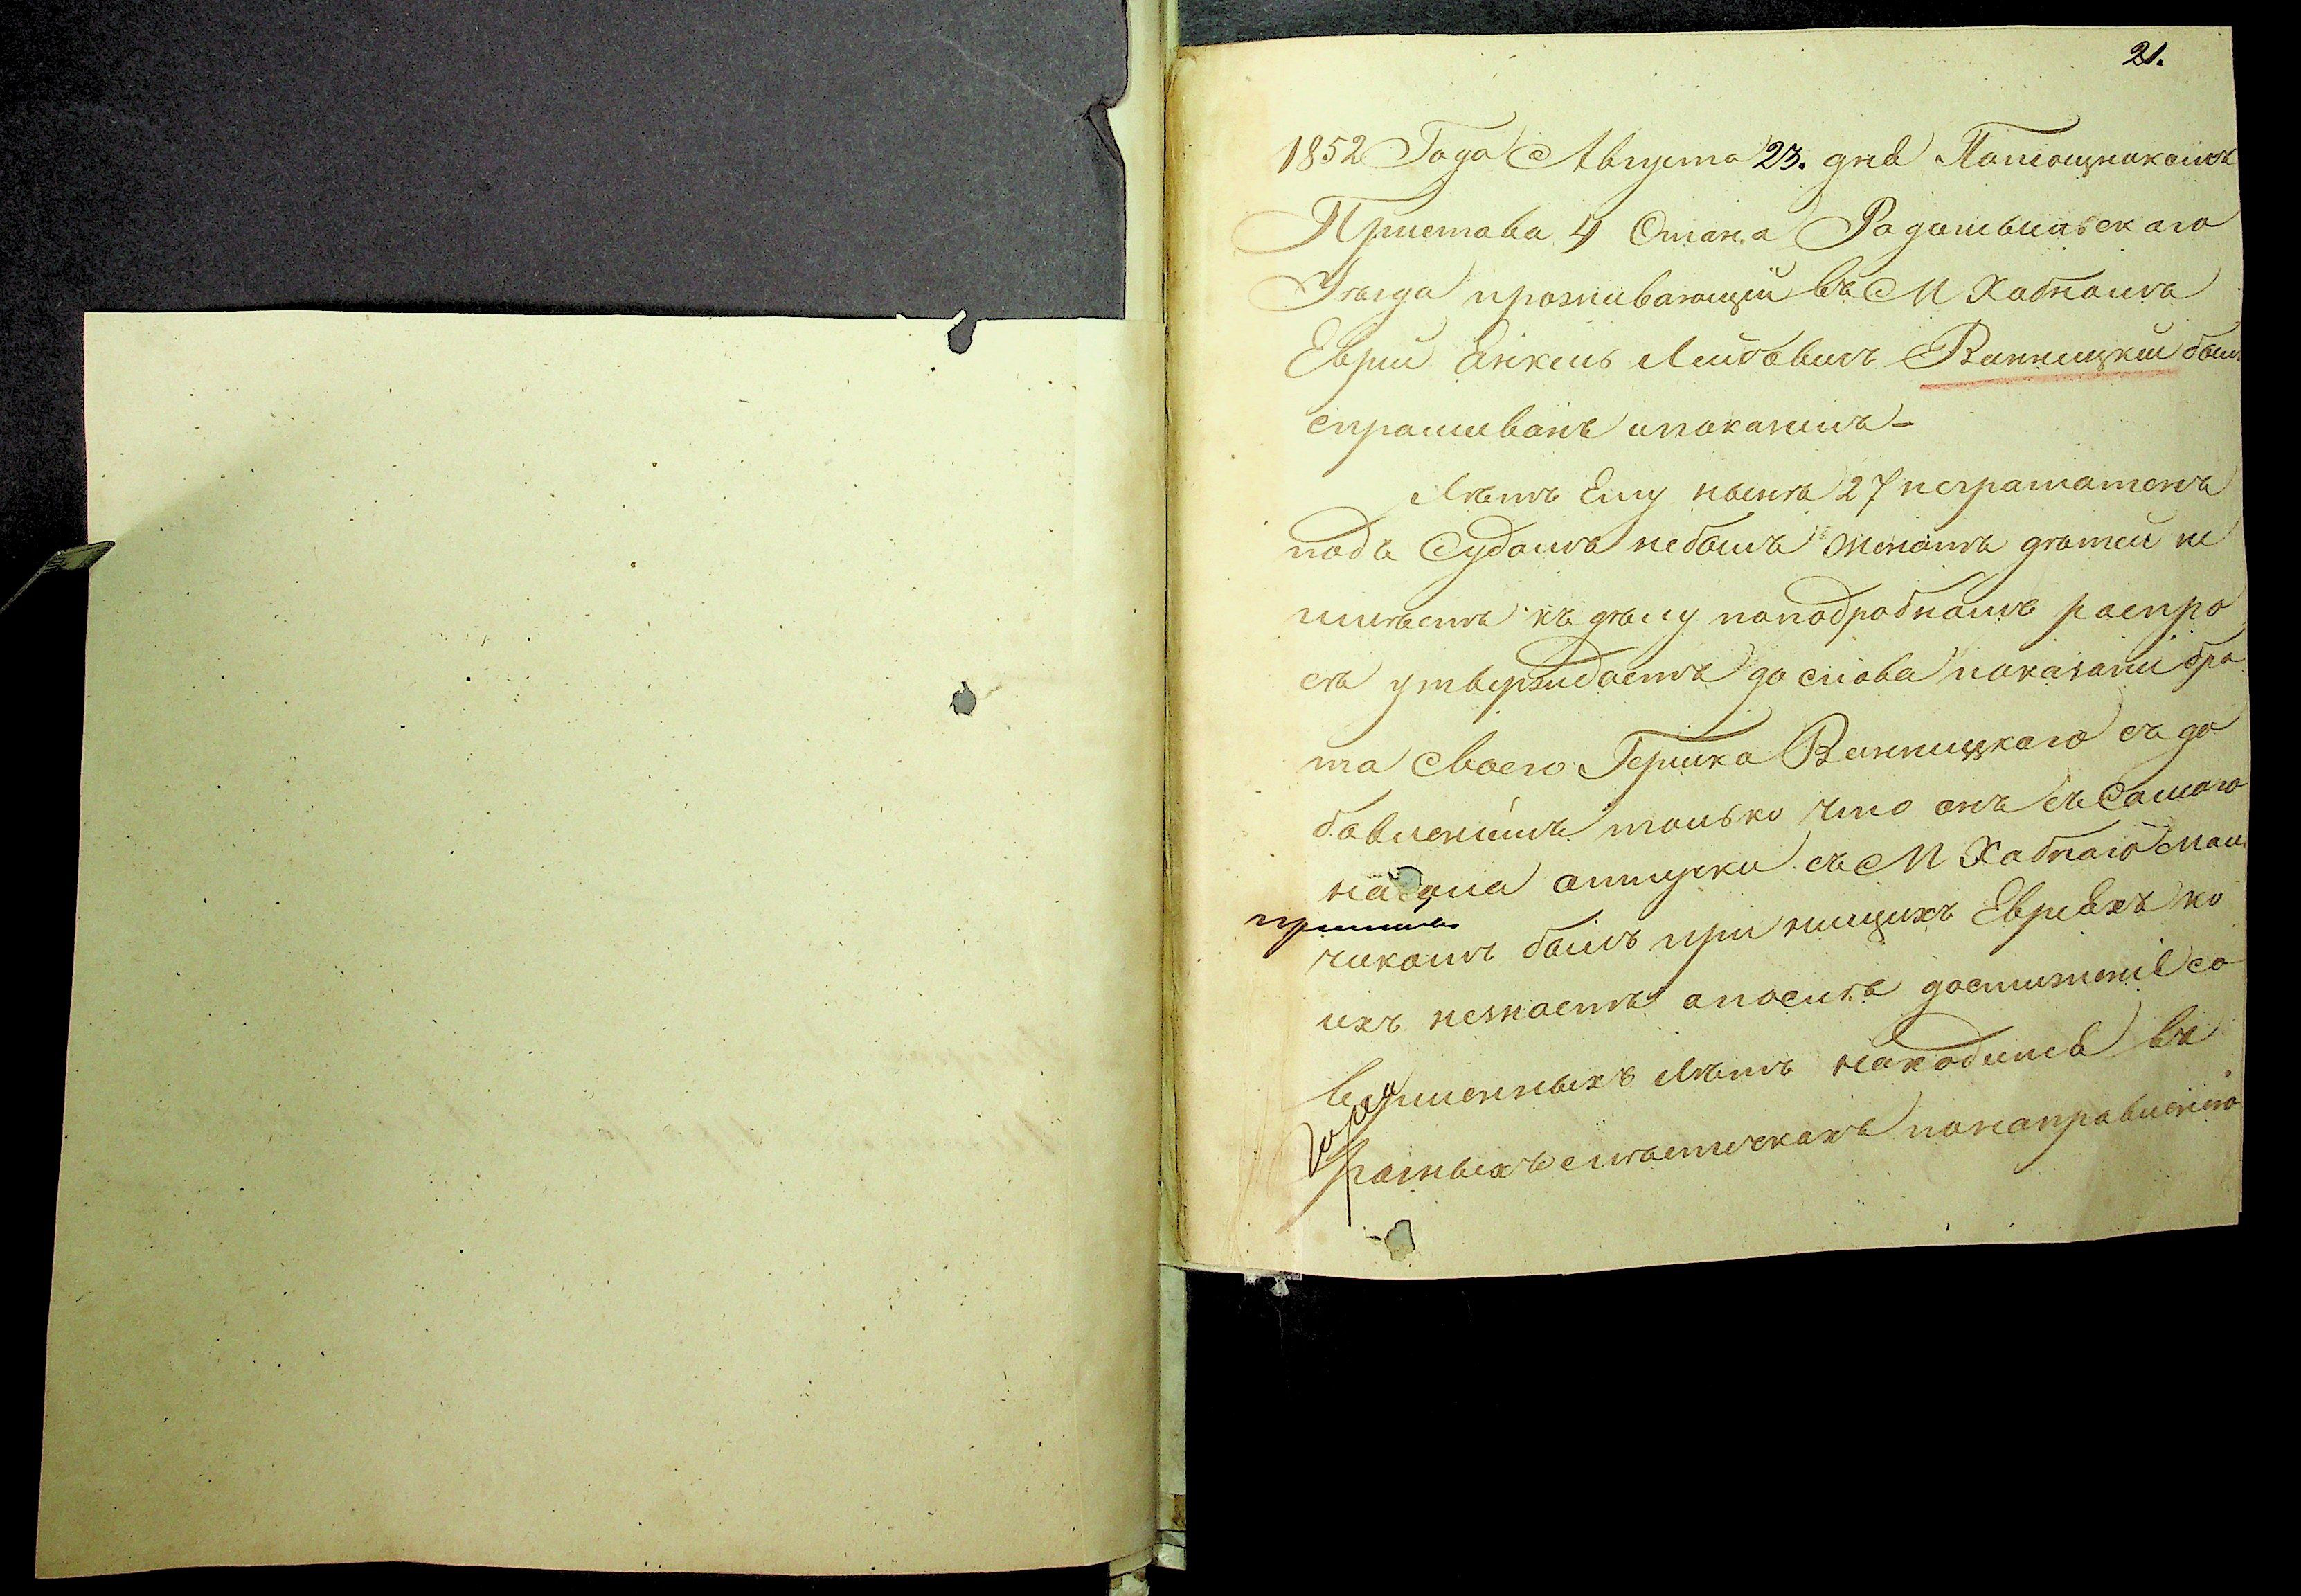 21.
1852 Года Августа 23. дня Помощникомъ
Пристава 4 Стана Радомысльскаго
Уѣзда проживающій въ М Хабномъ
Еврей Янкель Лейбовичъ Винницкій былъ
спрашиванъ и показалъ –
Лѣтъ Ему нынѣ 27 неграматенъ
подъ Судомъ небылъ женатъ дѣтей не
имѣетъ къ дѣлу поподробномъ распро
сѣ утверждаетъ до слова показаніе бра
та своего Гершка Винницкаго съ до
бавленіемъ только что онъ съ самаго
начала отлучки съ М Хабнаго мал
чикомъ былъ при нищихъ Евреяхъ ко
ихъ незнаетъ апослѣ достиженія со
вершенныхъ лѣтъ находился въ
разныхъ мѣстечкахъ понаправленію